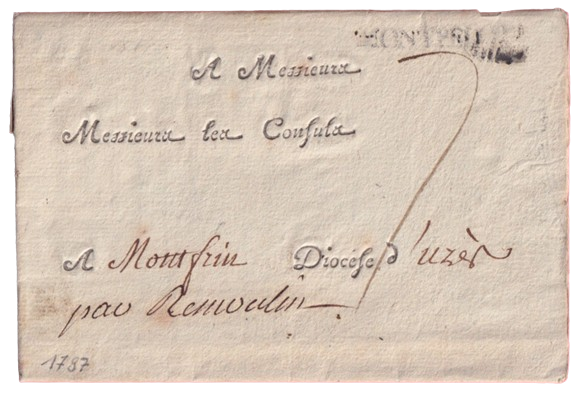 A Messieurs
Messieurs les Consuls
A Montfrin Diocèse d'uzès
par Remoulin
7
1787